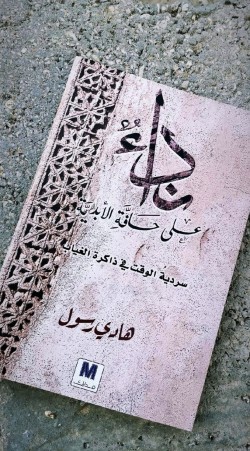 نداءٌ
على حافّة الأبديّة
سردية الوقت في ذاكرة الغياب
هادي رسول
M